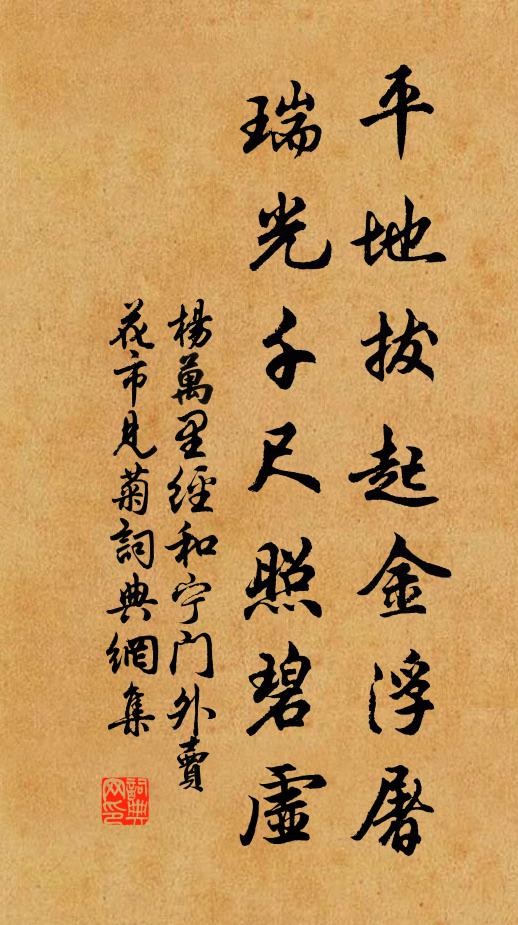 平地拔起金浮屠
瑞光千尺照碧虛
楊萬里經和宁门外賣
花市見菊詞典網集
詞典网印